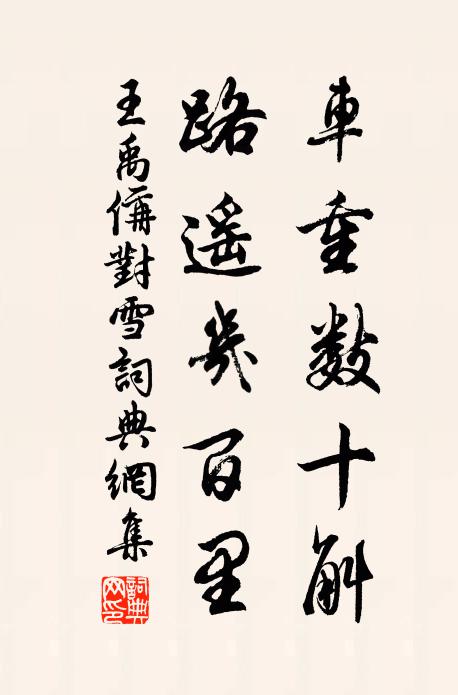 車重數十斛
路遥幾百里
王禹偁對雪詞典網集
詞典網印